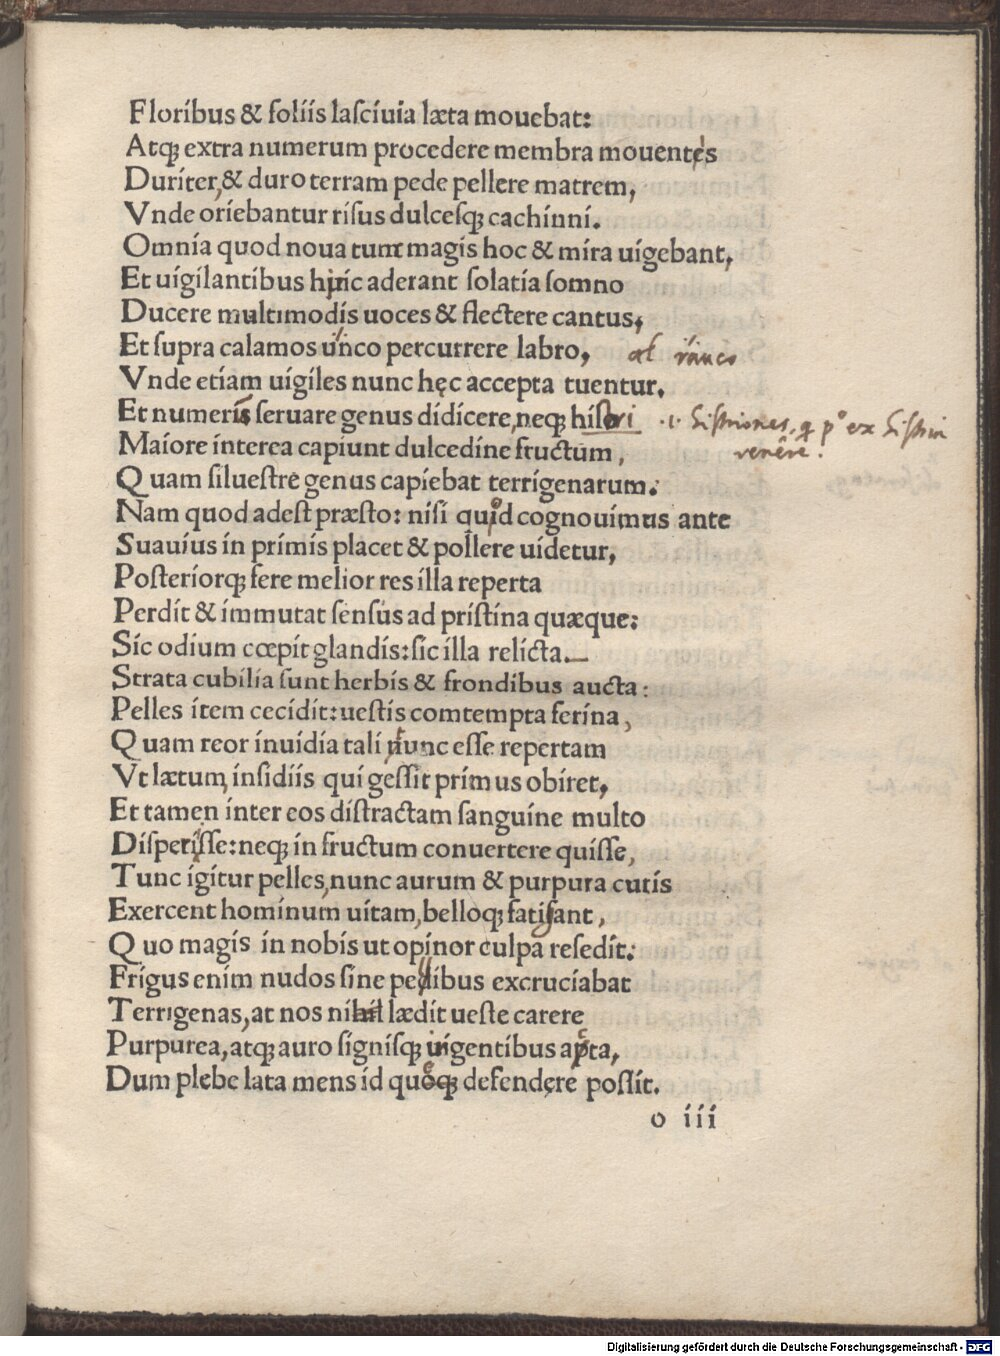 Floribus & foliis laſciuia læta mouebat:
Atq; extra numerum procedere membra mouentes
Duriter,& duro terram pede pellere matrem,
Vnde oriebantur riſus dulceſq; cachinni.
Omnia quod noua tum magis hoc & mira uigebant,
Et uigilantibus hinc aderant ſolatia ſomno
Ducere multimodis uoces & flectere cantus,
Et ſupra calamos unco percurrere labro, al rauco
Vnde etiam uigiles nunc hęc accepta tuentur.
Et numeris ſeruare genus didicere,neq; hiſtri .i. Hiſtriones. q p° ex Hiſtria
Maiore interea capiunt dulcedine fructum, venere.
Quam ſilueſtre genus capiebat terrigenarum.
Nam quod adeſt præſto: niſi quid cognouimus ante
Suauius in primis placet & pollere uidetur,
Poſteriorq; fere melior res illa reperta
Perdit & immutat ſenſus ad priſtina quæque:
Sic odium cœpit glandis:ſic illa relicta
Strata cubilia ſunt herbis & frondibus aucta:
Pelles item cecidit:ueſtis comtempta ferina,
Quam reor inuidia tali nunc eſſe repertam
Vt lætum, inſidiis qui geſſit primus obiret,
Et tamen inter eos diſtractam ſanguine multo
Diſperiſſe:neq; in fructum conuertere quiſſe,
Tunc igitur pelles,nunc aurum & purpura curis
Exercent hominum uitam,belloq; fatigant,
Quo magis in nobis ut opinor culpa reſedit:
Frigus enim nudos ſine pellibus excruciabat
Terrigenas,at nos nihil lædit ueſte carere
Purpurea,atq; auro ſigniſq; uigentibus apta,
Dum plebe lata mens id quoq; defendere poſſit.
o iii
Digitalisierung gefördert durch die Deutsche Forschungsgemeinschaft - DFG